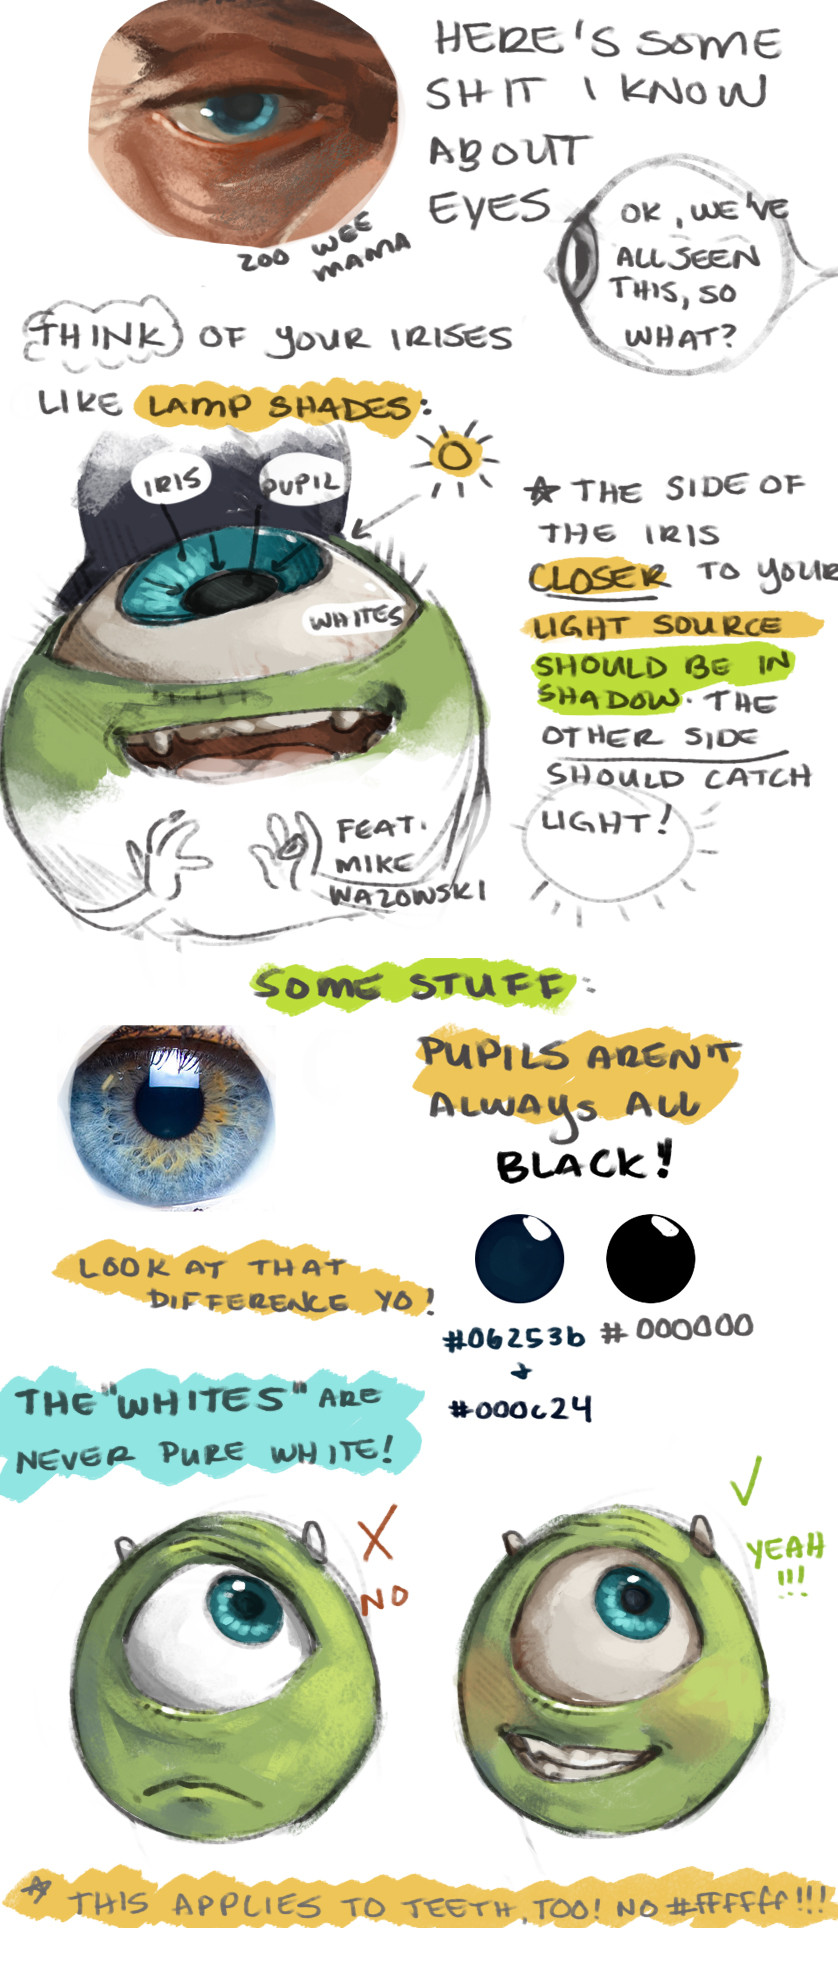 HERE'S SOME
SHIT I KNOW
ABOUT
EYES
ZOO WEE
MAMA
OK, WE'VE
ALL SEEN
THIS, SO
WHAT?
THINK OF YOUR IRISES
LIKE LAMP SHADES:
IRIS
PUPIL
WHITES
☆ THE SIDE OF
THE IRIS
CLOSER TO YOUR
LIGHT SOURCE
SHOULD BE IN
SHADOW. THE
OTHER SIDE
SHOULD CATCH
LIGHT!
FEAT.
MIKE
WAZOWSKI
SOME STUFF:
PUPILS AREN'T
ALWAYS ALL
BLACK!
LOOK AT THAT
DIFFERENCE YO!
#06253b
+
#000c24
#000000
THE "WHITES" ARE
NEVER PURE WHITE!
X
NO
✓
YEAH
!!!
☆ THIS APPLIES TO TEETH, TOO! NO #ffffff!!!